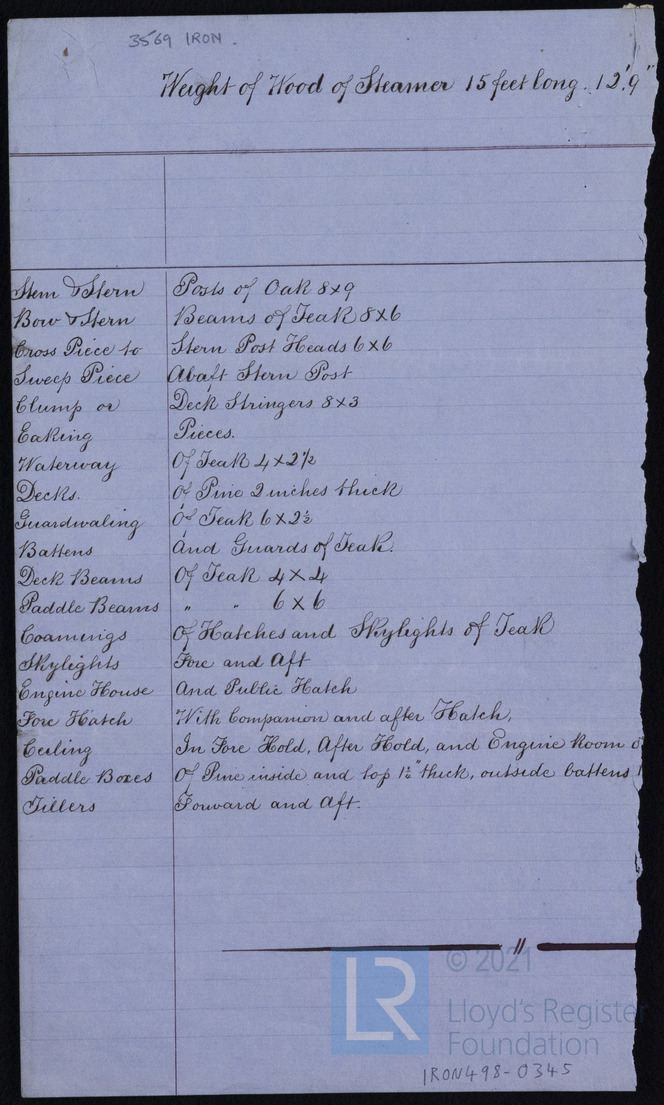 3569 IRON.
Weight of Wood of Steamer 15 feet long. 12'.9"
Stem & Stern Posts of Oak 8x9
Bow & Stern Beams of Teak 8x6
Cross Piece to Stern Post Heads 6x6
Sweep Piece Abaft Stern Post
Clump or Deck Stringers 8x3
Eaking Pieces.
Waterway Of Teak 4x2½
Decks. Of Pine 2 inches thick
Guardwaling Of Teak 6x2½
Battens And Guards of Teak.
Deck Beams Of Teak 4x4
Paddle Beams " " 6x6
Coamings Of Hatches and Skylights of Teak
Skylights Fore and Aft
Engine House And Public Hatch
Fore Hatch With Companion and after Hatch,
Ceiling In Fore Hold, After Hold, and Engine Room
Paddle Boxes Of Pine inside and top 1½" thick, outside battens
Tillers Forward and Aft.
LR
© 2021
Lloyd's Register
Foundation
IRON498-0345